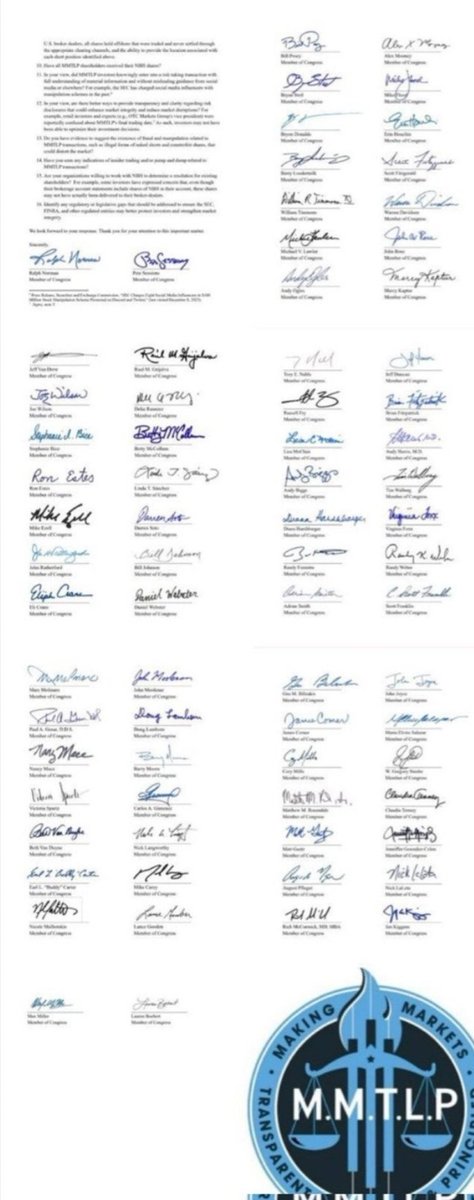 U.S. broker dealers, all shares held offshore that were traded and never settled through
the appropriate clearing channels, and the ability to provide the location associated with
each short position identified above.
10. Have all MMTLP shareholders received their NBH shares?
11. In your view, did MMTLP investors knowingly enter into a risk taking transaction with
full understanding of material information and without misleading guidance from social
media or elsewhere? For example, the SEC has charged social media influencers with
manipulation schemes in the past.
12. In your view, are there better ways to provide transparency and clarity regarding risk
disclosures that could enhance market integrity and reduce market disruptions? For
example, retail investors and experts (e.g., OTC Markets Group's vice president) were
reportedly confused about MMTLP's final trading date. As such, investors may not have
been able to optimize their investment decisions.
13. Do you have evidence to suggest the existence of fraud and manipulation related to
MMTLP transactions, such as illegal forms of naked shorts and counterfeit shares, that
could distort the market?
14. Have you seen any indications of insider trading and/or pump and dump related to
MMTLP transactions?
15. Are your organizations willing to work with NBH to determine a resolution for existing
shareholders? For example, some investors have expressed concern that, even though
their brokerage account statements include shares of NBH in their account, these shares
may not have actually been delivered to their broker-dealers.
16. Identify any regulatory or legislative gaps that should be addressed to ensure the SEC,
FINRA, and other regulated entities may better protect investors and strengthen market
integrity.
We look forward to your response. Thank you for your attention to this important matter.
Sincerely,
Ralph Norman Pete Sessions
Member of Congress Member of Congress
Bill Posey Alex X. Mooney
Member of Congress Member of Congress
Bryan Steil Mike Flood
Member of Congress Member of Congress
Byron Donalds Erin Houchin
Member of Congress Member of Congress
Barry Loudermilk Scott Fitzgerald
Member of Congress Member of Congress
William Timmons Warren Davidson
Member of Congress Member of Congress
Michael V. Lawler John Rose
Member of Congress Member of Congress
Andy Ogles Marcy Kaptur
Member of Congress Member of Congress
Jeff Van Drew Raul M. Grijalva
Member of Congress Member of Congress
Joe Wilson Debie
Member of Congress Member of Congress
Stephanie Bice Betty McCollum
Member of Congress Member of Congress
Ron Estes Linda T. Sánchez
Member of Congress Member of Congress
Mike Ezell Darren Soto
Member of Congress Member of Congress
John Rutherford Bill Johnson
Member of Congress Member of Congress
Eli Crane Daniel Webster
Member of Congress Member of Congress
Troy E. Nehls Jeff Duncan
Member of Congress Member of Congress
Russell Fry Brian Fitzpatrick
Member of Congress Member of Congress
Lisa McClain Andy Harris, M.D.
Member of Congress Member of Congress
Andy Biggs Tim Walberg
Member of Congress Member of Congress
Diana Harshbarger Virginia Foxx
Member of Congress Member of Congress
Randy Feenstra Randy Weber
Member of Congress Member of Congress
Adrian Smith C. Scott Franklin
Member of Congress Member of Congress
Marc Molinaro John Moolenaar
Member of Congress Member of Congress
Paul A. Gosar, D.D.S. Doug Lamborn
Member of Congress Member of Congress
Nancy Mace Barry Moore
Member of Congress Member of Congress
Victoria Spartz Carlos A. Gimenez
Member of Congress Member of Congress
Beth Van Duyne Nick Langworthy
Member of Congress Member of Congress
Earl L. "Buddy" Carter Mike Carey
Member of Congress Member of Congress
Nicole Malliotakis Lance Gooden
Member of Congress Member of Congress
Gus M. Bilirakis John Joyce
Member of Congress Member of Congress
James Comer Maria Elvira Salazar
Member of Congress Member of Congress
Cory Mills W. Gregory Steube
Member of Congress Member of Congress
Matthew M. Rosendale Claudia Tenney
Member of Congress Member of Congress
Matt Gaetz Jenniffer González-Colón
Member of Congress Member of Congress
August Pfluger Nick LaLota
Member of Congress Member of Congress
Rich McCormick, MD, MBA Jen Kiggans
Member of Congress Member of Congress
Max Miller Lauren Boebert
Member of Congress Member of Congress
MAKING MARKETS
M.M.T.L.P
TRANSPAREN
PRINCIPLE